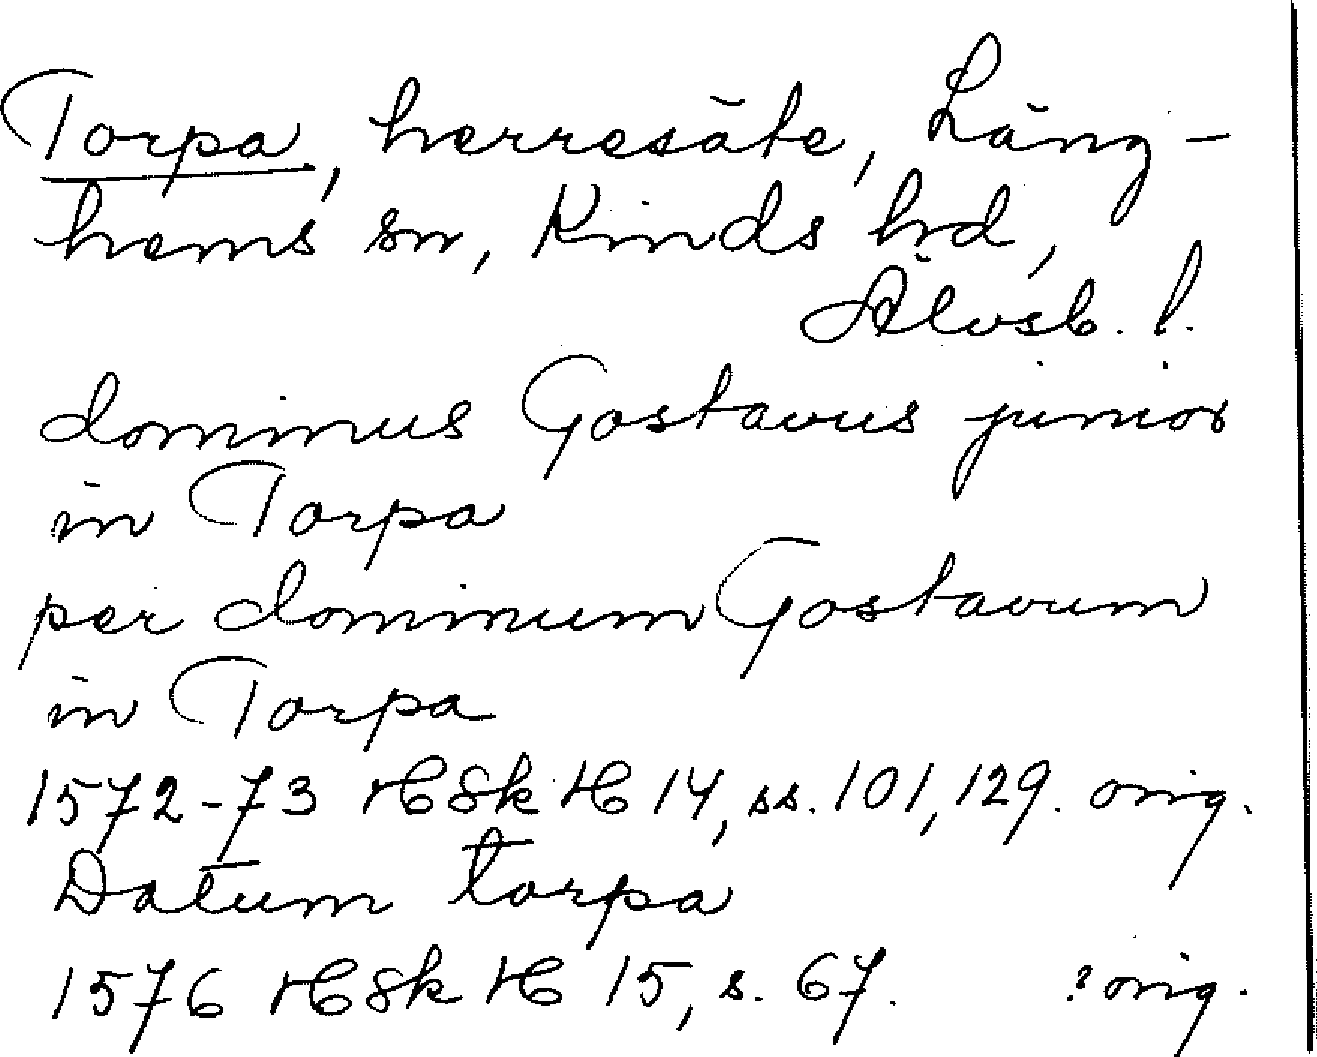 Torpa, herresäte, Läng-
hems sn, Kinds hd,
Älvsb. l.
dominus Gostavus junior
in Torpa
per dominum Gostavum
in Torpa
1572-73 HSk H 14, ss. 101, 129. orig.
Datum torpa
1576 HSk H 15, s. 67. ? orig.